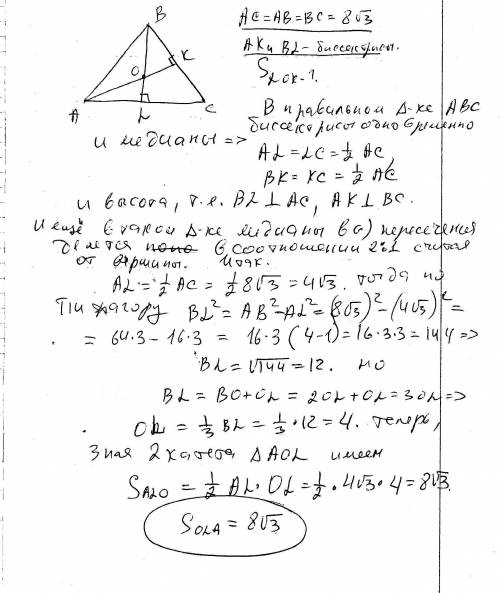 B
K
O
A
L
C
AC = AB = BC = 8√3
AK и BL - биссектрисы.
S LOK - ?
В правильном Δ-ке ABC
биссектрисы одновременно
и медианы =>
AL = LC = 1/2 AC,
BK = KC = 1/2 AC
и высота, т.е. BL ⊥ AC, AK ⊥ BC.
И ещё в таком Δ-ке медианы в (·) пересечения
делятся в соотношении 2:1 считая
от вершины. Итак.
AL = 1/2 AC = 1/2 8√3 = 4√3. тогда по
Пифагору BL² = AB² - AL² = (8√3)² - (4√3)² =
= 64.3 - 16.3 = 16.3 (4-1) = 16.3.3 = 144 =>
BL = √144 = 12. но
BL = BO + OL = 2OL + OL = 3OL =>
OL = 1/3 BL = 1/3 · 12 = 4. теперь,
Зная 2 катета ΔAOL имеем
S ALO = 1/2 AL · OL = 1/2 · 4√3 · 4 = 8√3.
S OLA = 8√3